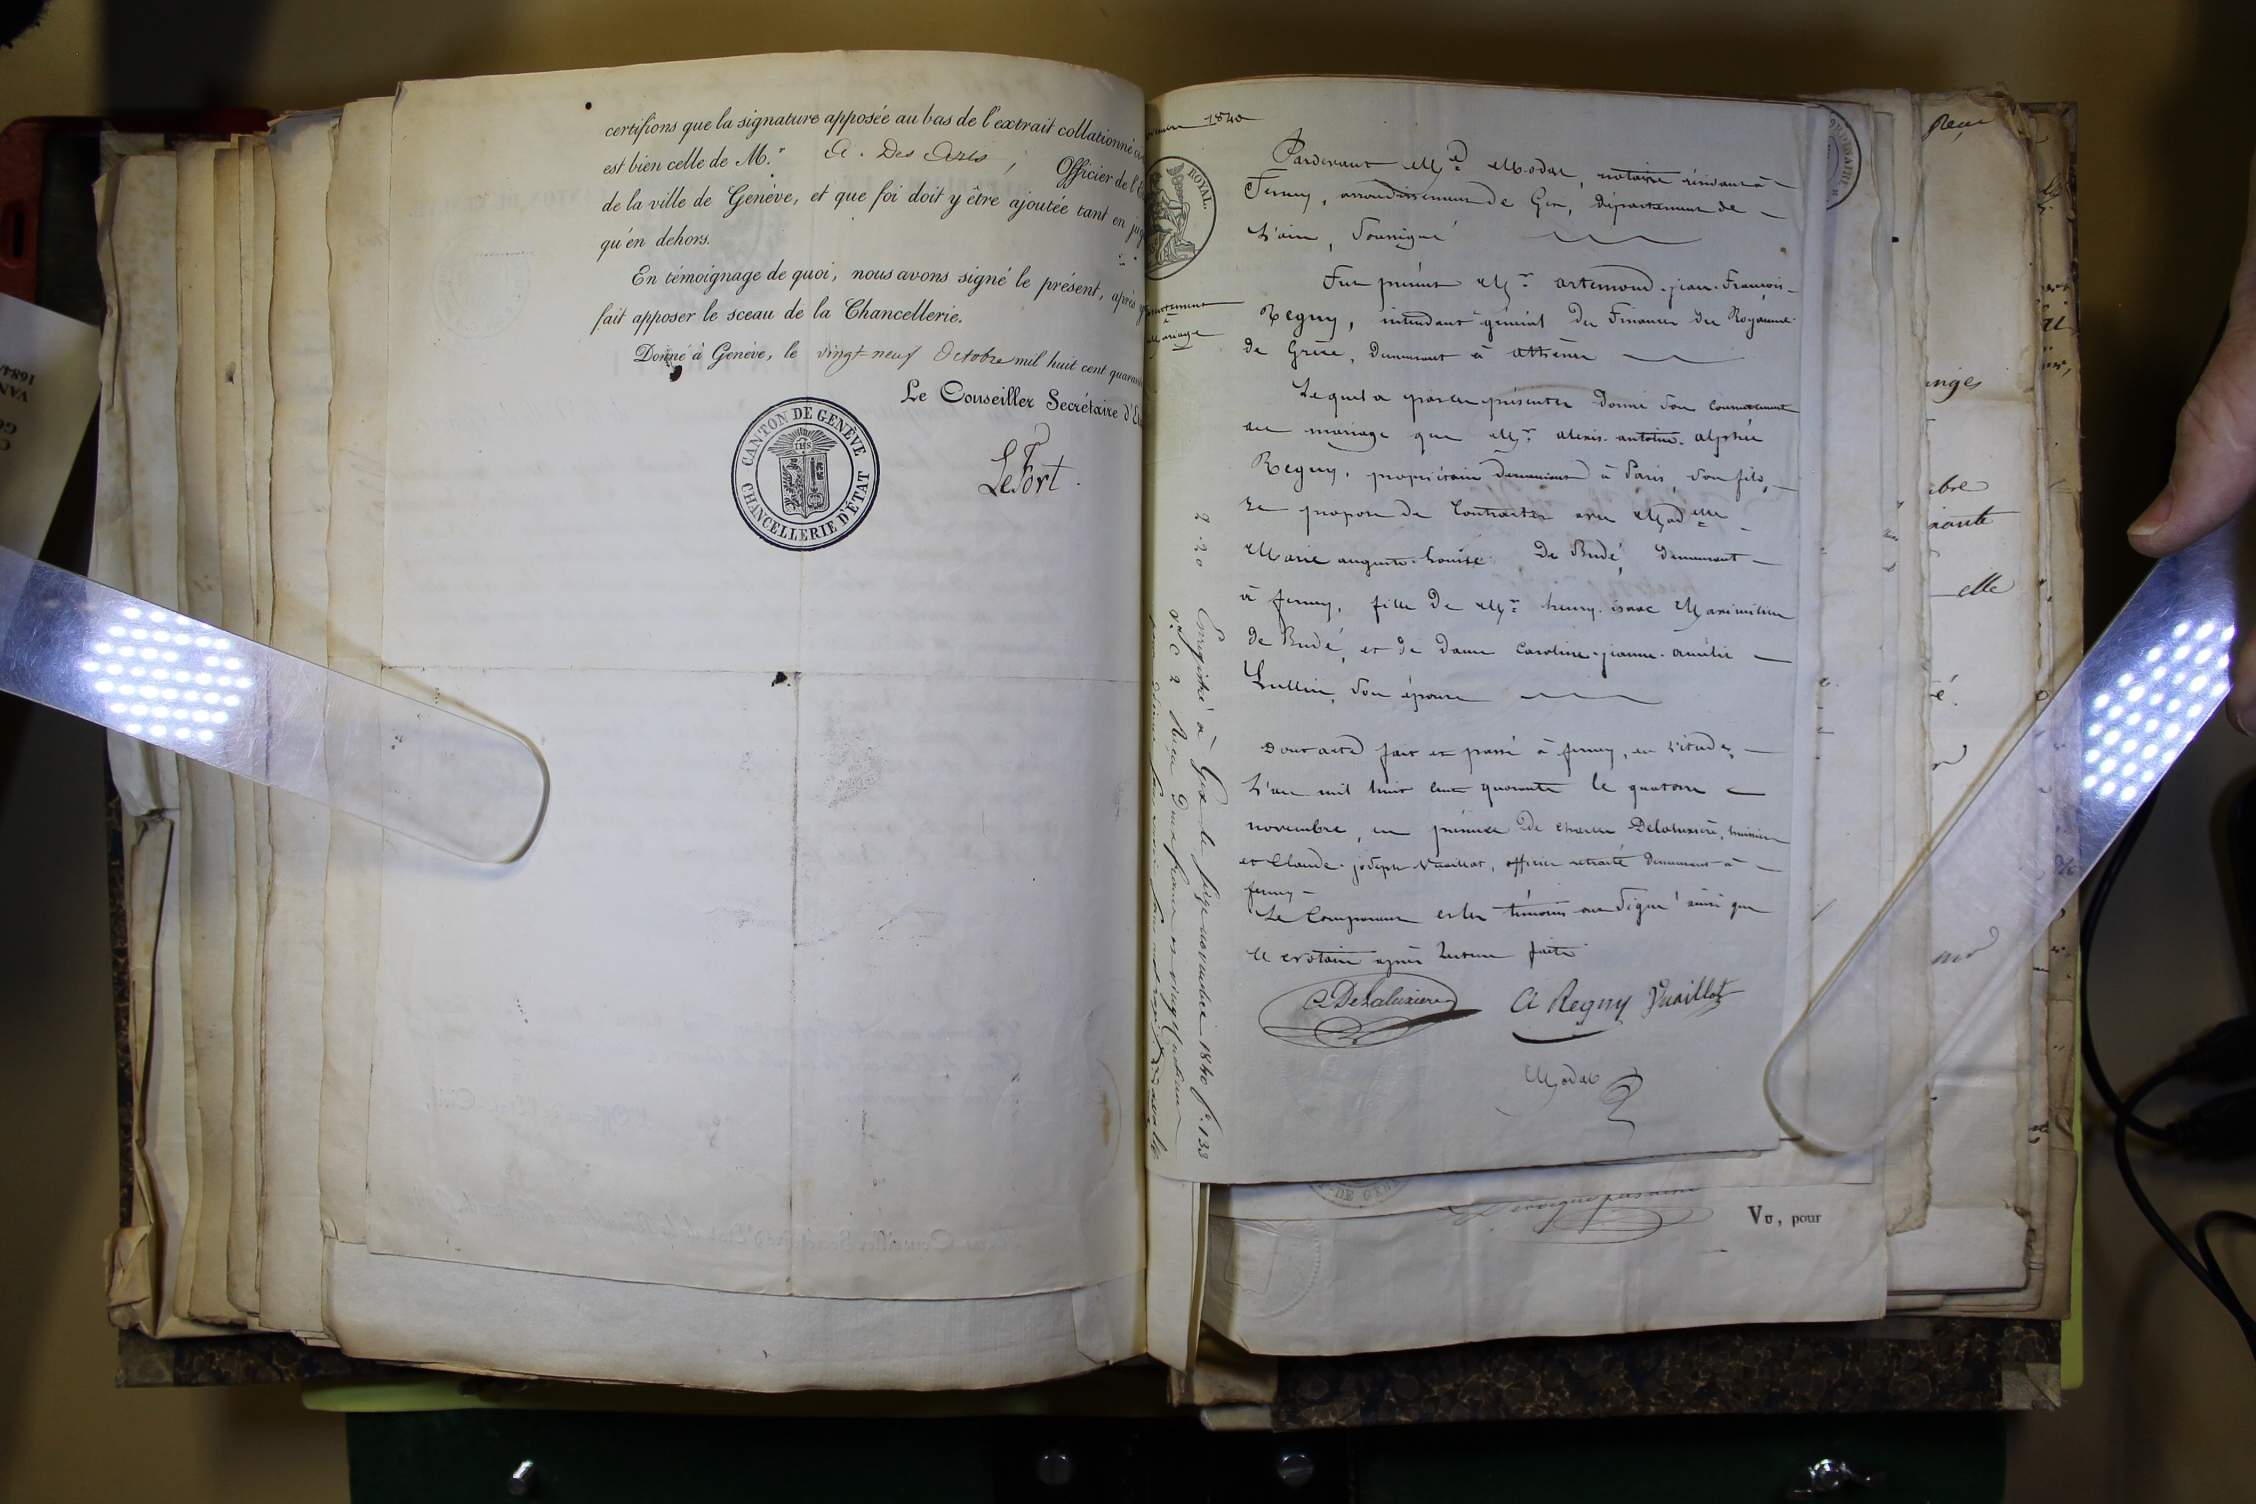 certifions que la signature apposée au bas de l'extrait collationné
est bien celle de M.r A. Des Arts, Officier de l'
de la ville de Genève, et que foi doit y être ajoutée tant en
qu'en dehors.
En témoignage de quoi, nous avons signé le présent, après
fait apposer le sceau de la Chancellerie.
Donné à Genève, le vingt-neuf Octobre mil huit cent
Le Conseiller Secrétaire d'
CANTON DE GENÈVE
IHS
CHANCELLERIE D'ÉTAT
LeFort.
1840
ROYAL.
Mariage
Pardevant Me Modas, notaire résidant à
Ferney, arrondissement de Gex, département de
L'ain, soussigné
Fut présent Mr artemond-jean-François
Regny, intendant général des Finances du Royaume
de Grèce, demeurant à athènes
Lequel a par ces présentes donné son consentement
au mariage que Mr alexis-antoine-alphée
Regny, propriétaire demeurant à Paris, son fils,
se propose de Contracter avec Madelle
Marie auguste-Louise De Budé, demeurant
à ferney, fille de Mr henry-isaac Maximilien
de Budé, et de dame Caroline-jeanne-amélie
Lullin, son épouse
Dont acte fait et passé à ferney, en l'étude,
L'an mil huit cent quarante le quatorze
novembre, en présence de charles Delaluxière, huissier
et Claude-joseph Vuaillat, officier retraité demeurant à
ferney
Le Comparant et les témoins ont signé ainsi que
le notaire après lecture faite
Delaluxiere A Regny Vuaillat
Modas
Enregistré à Gex le seize novembre 1840 fo 133
vo c 2 Reçu deux francs et vingt centimes
2 20
Vu, pour
elle